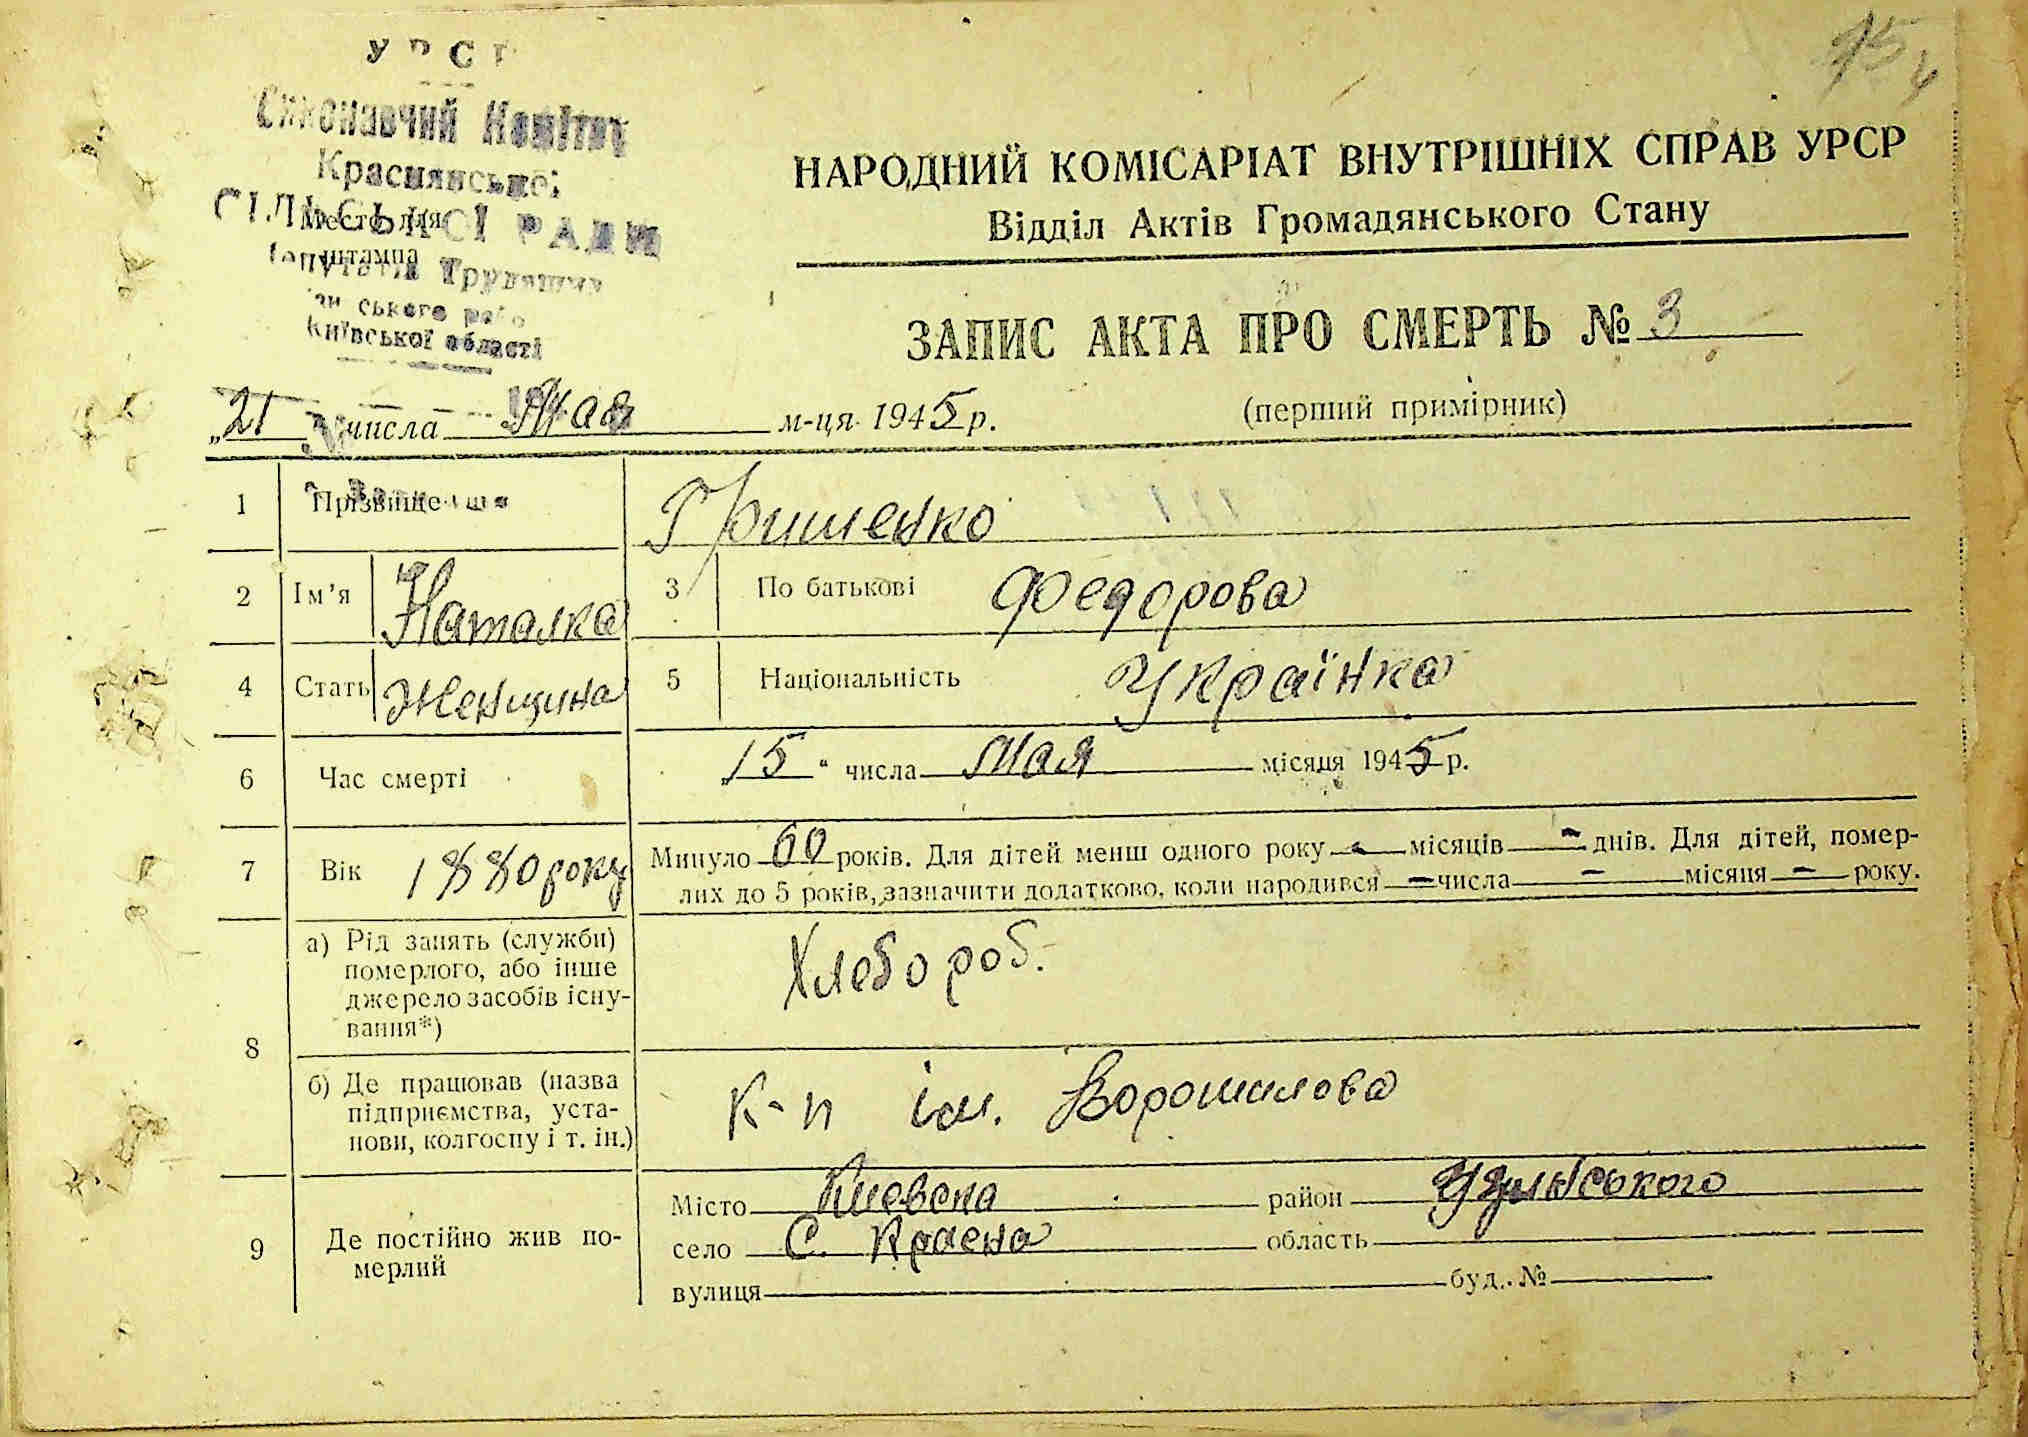 УРСР
Виконавчий Комітет
Краснянської
СІЛЬСЬКОЇ РАДИ
Место для
штампа
депутатів Трудящих
ського
Київської області
НАРОДНИЙ КОМІСАРІАТ ВНУТРІШНІХ СПРАВ УРСР
Відділ Актів Громадянського Стану
ЗАПИС АКТА ПРО СМЕРТЬ № 3
(перший примірник)
„21" числа Мая м-ця 1945 р.
1 Прізвище Гришенко
2 Ім'я Наталка 3 По батькові Федорова
4 Стать Женщина 5 Національність Українка
6 Час смерті „15" числа Мая місяця 1945 р.
7 Вік 1880 року Минуло 60 років. Для дітей менш одного року - місяців - днів. Для дітей, помер-
лих до 5 років, зазначити додатково, коли народився - числа - місяця - року.
8 а) Рід занять (служби)
померлого, або інше
джерело засобів існу-
вання*)
Хлебороб.
б) Де працював (назва
підприємства, уста-
нови, колгоспу і т. ін.)
К-п ім. Ворошилова
9 Де постійно жив по-
мерлий
Місто Киевска район
село С. Красна область
вулиця буд. №